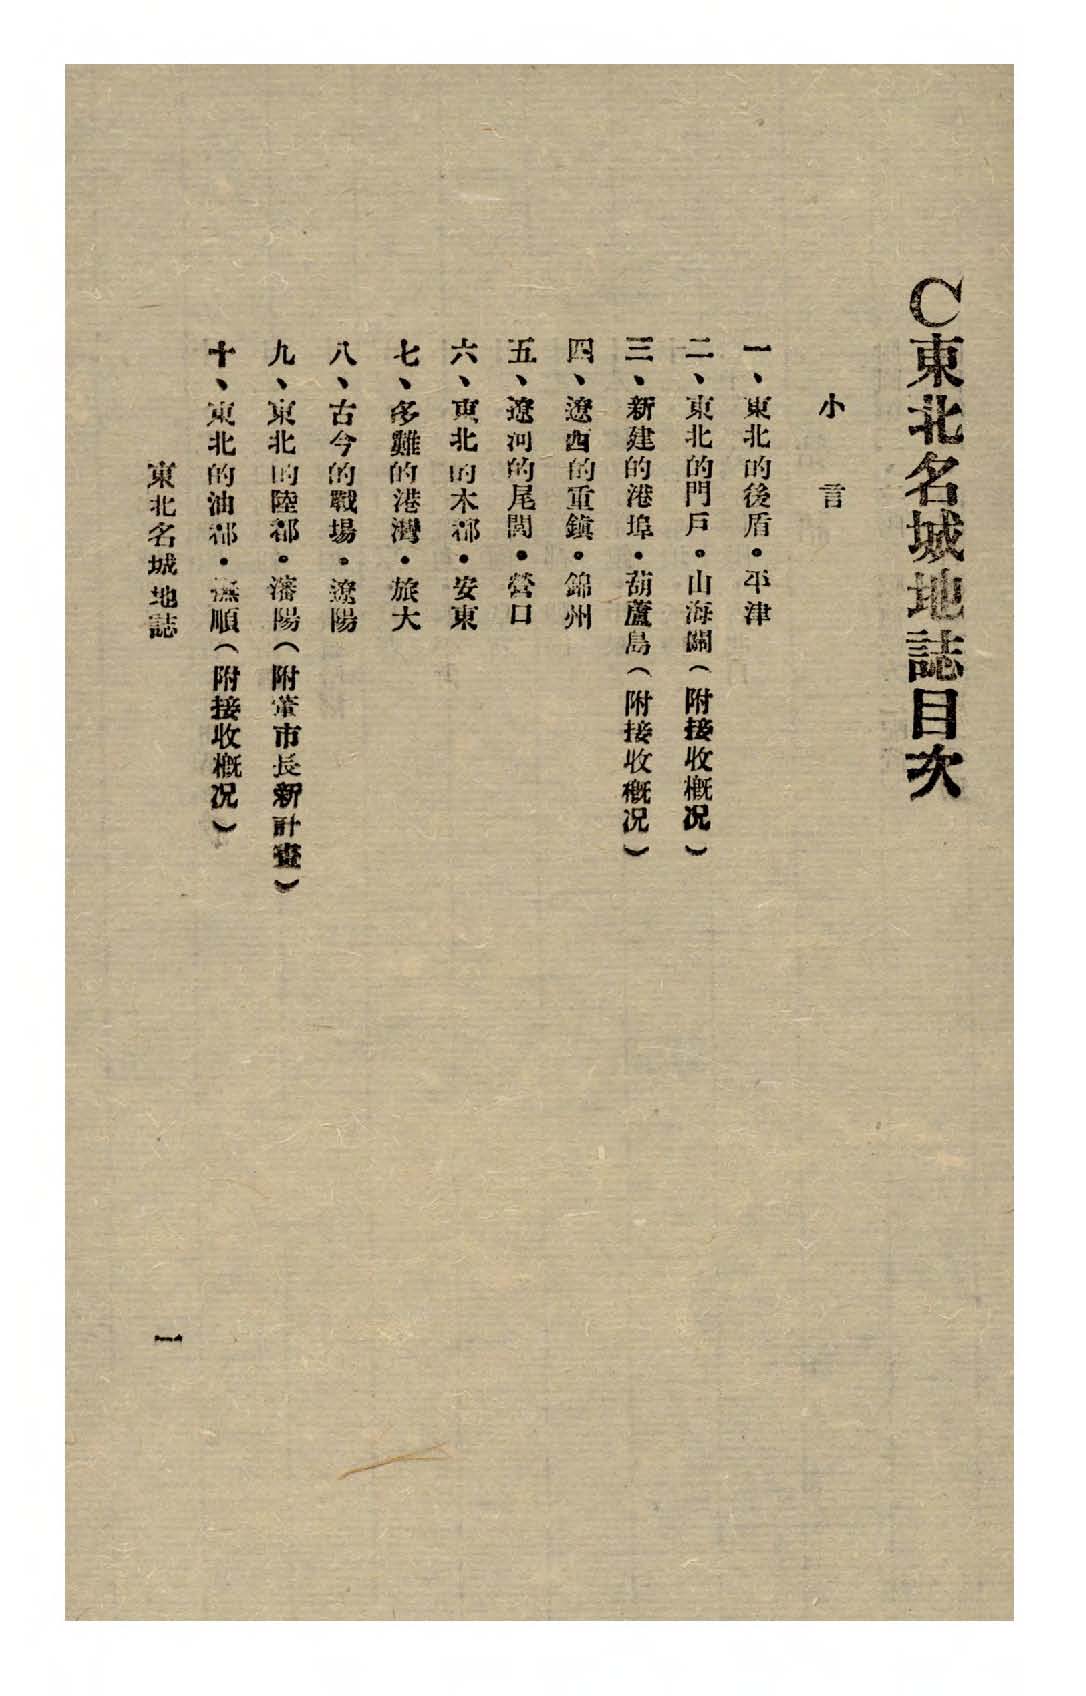 C東北名城地誌目次
小言
一、東北的後盾・平津
二、東北的門戶・山海關(附接收概况)
三、新建的港埠・葫蘆島(附接收概况)
四、遼西的重鎮・錦州
五、遼河的尾閭・營口
六、東北的木都・安東
七、多難的港灣・旅大
八、古今的戰場・遼陽
九、東北的陸都・瀋陽(附董市長新計畫)
十、東北的油都・撫順(附接收概况)
東北名城地誌
一